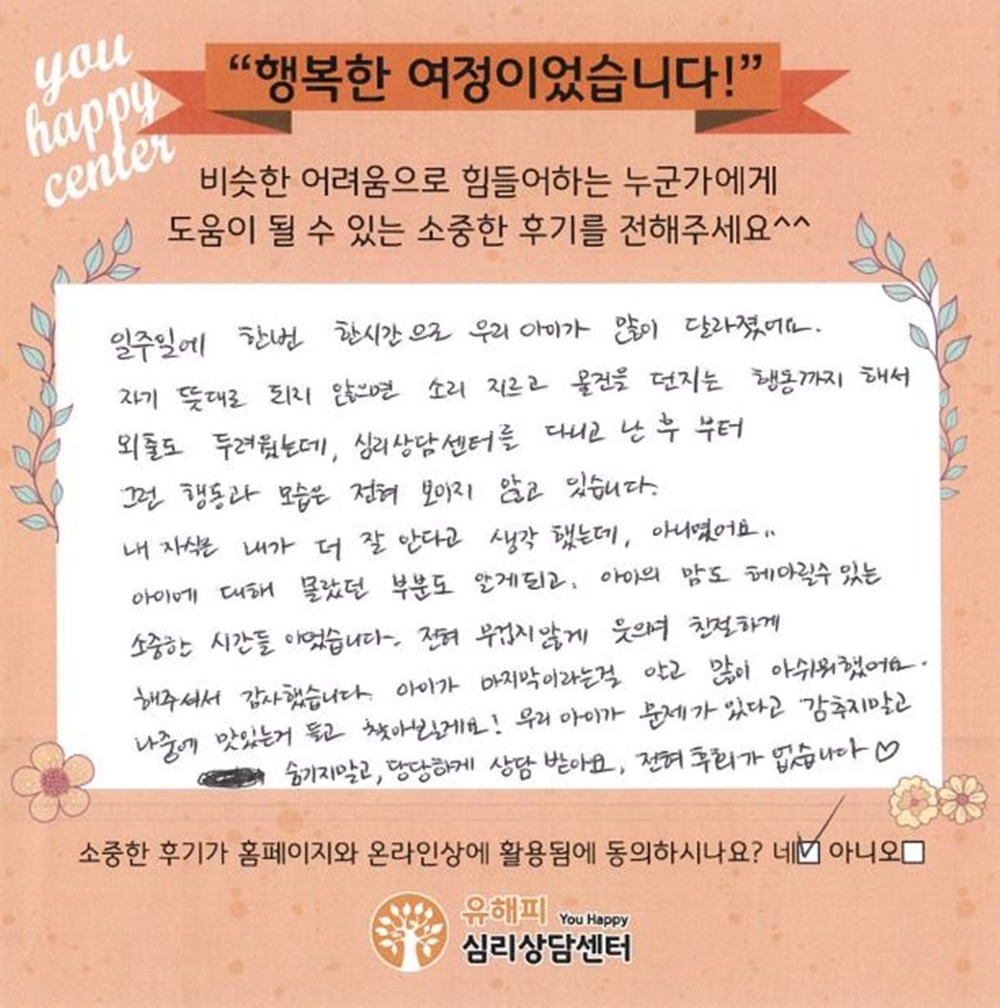 you
happy
center
“행복한 여정이었습니다!”
비슷한 어려움으로 힘들어하는 누군가에게
도움이 될 수 있는 소중한 후기를 전해주세요^^
일주일에 한번 한시간으로 우리 아이가 많이 달라졌어요.
자기 뜻대로 되지 않으면 소리 지르고 물건을 던지는 행동까지 해서
외출도 두려웠는데, 심리상담센터를 다니고 난 후 부터
그런 행동과 모습은 전혀 보이지 않고 있습니다.
내 자식은 내가 더 잘 안다고 생각 했는데, 아니였어요..
아이에 대해 몰랐던 부분도 알게되고, 아이의 맘도 헤아릴수 있는
소중한 시간들 이었습니다. 전혀 무겁지않게 웃으며 친절하게
해주셔서 감사했습니다. 아이가 마지막이라는걸 알고 많이 아쉬워했어요.
나중에 맛있는거 들고 찾아뵐게요! 우리 아이가 문제가 있다고 감추지말고
숨기지말고, 당당하게 상담 받아요, 전혀 후회가 없습니다♡
소중한 후기가 홈페이지와 온라인상에 활용됨에 동의하시나요? 네☑ 아니오☐
유해피 You Happy
심리상담센터